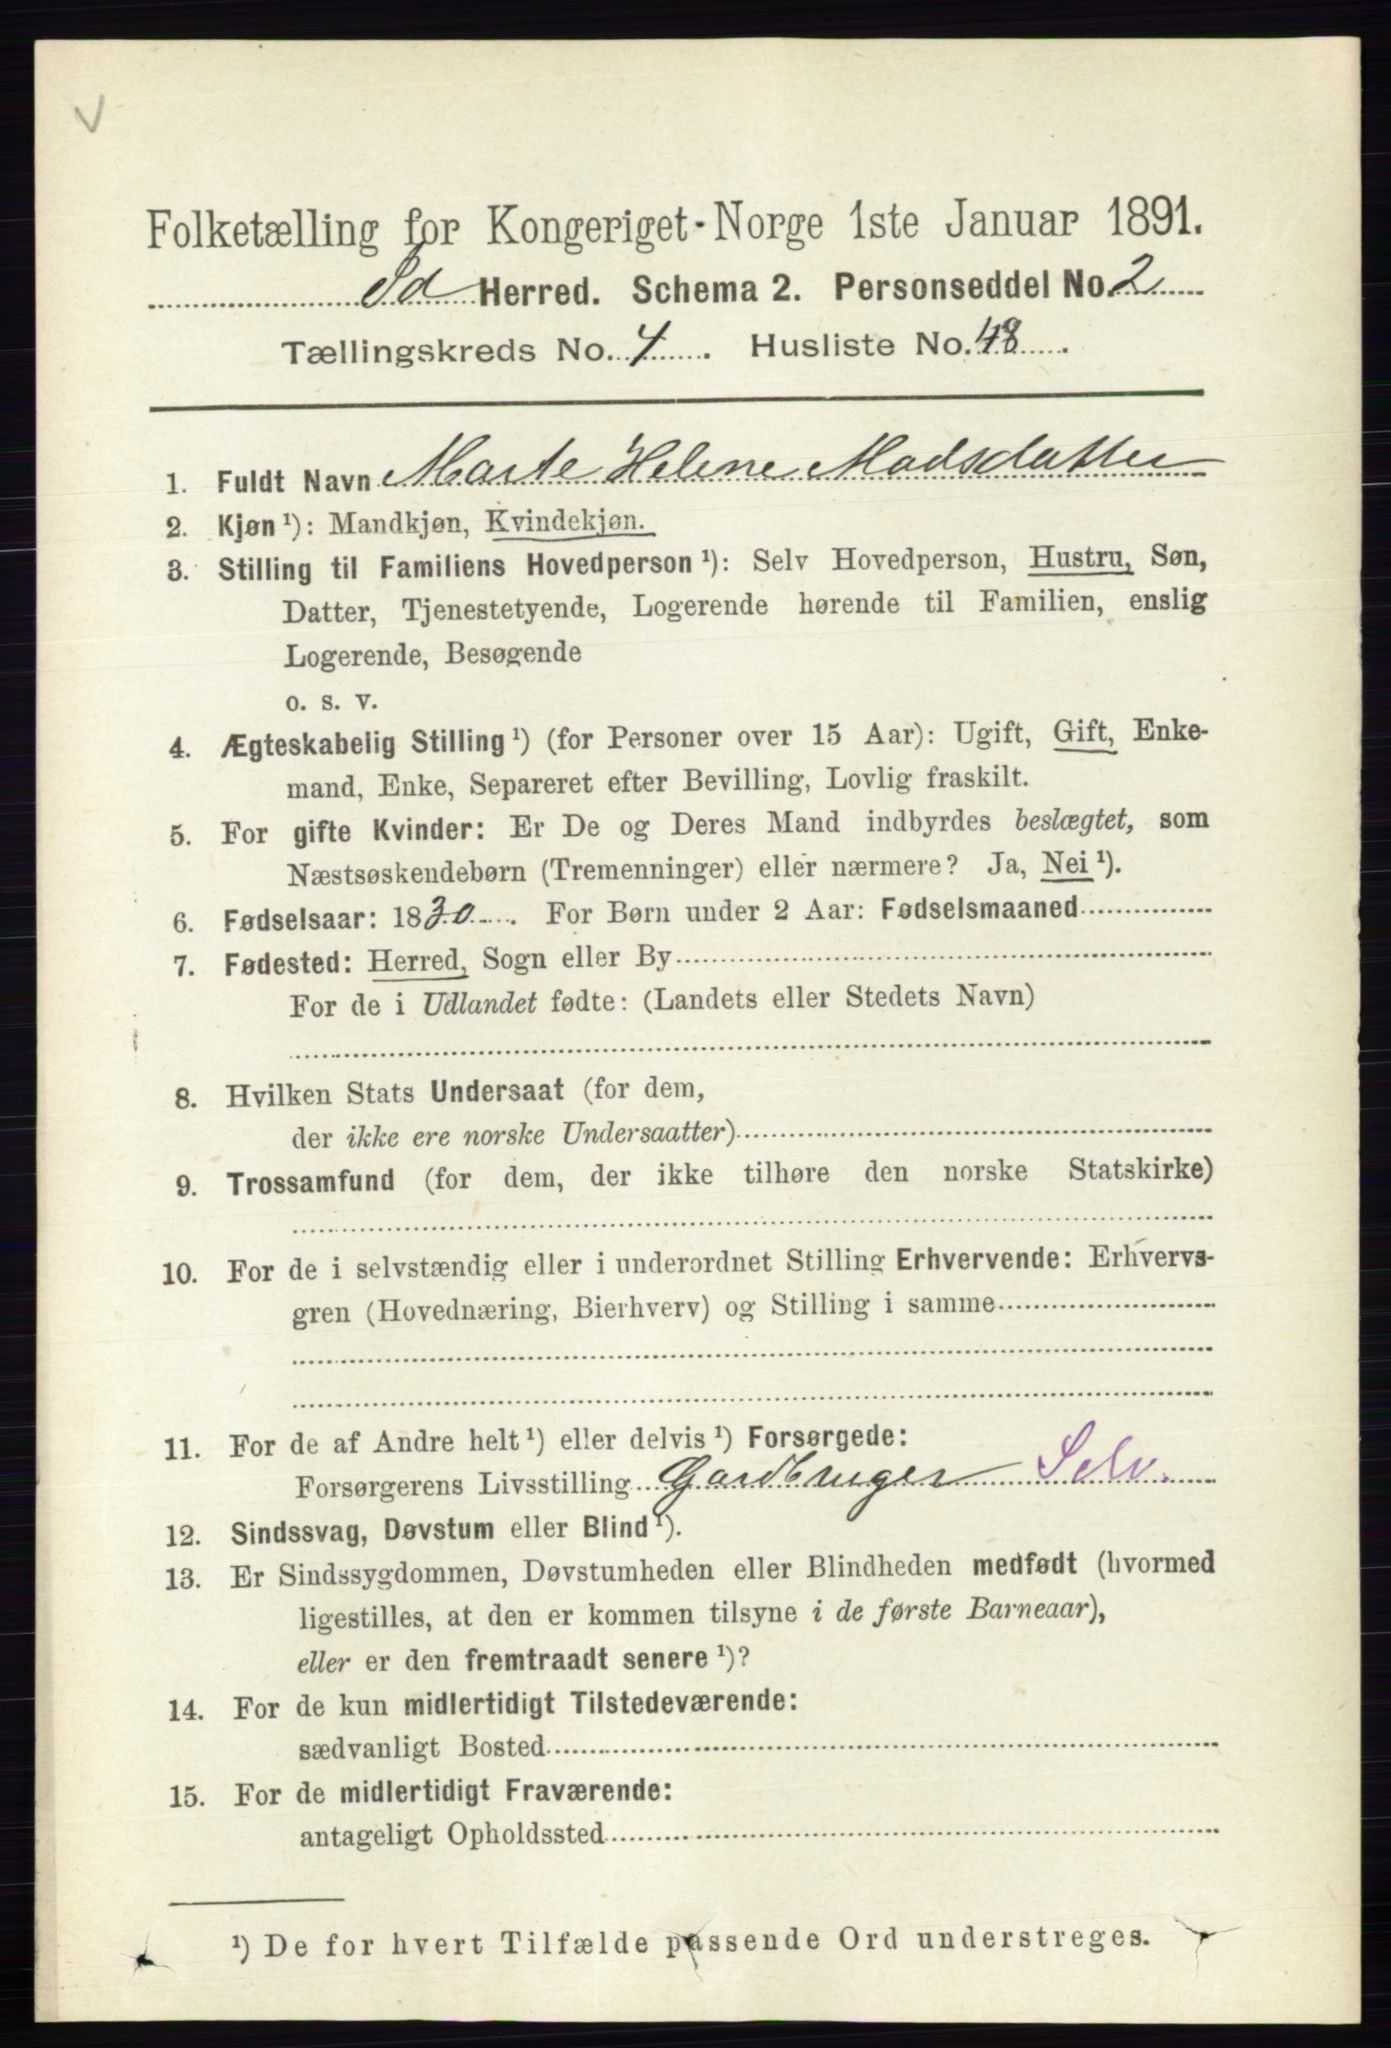 Folketælling for Kongeriget Norge 1ste Januar 1891.
Id Herred. Schema 2. Personseddel No. 2
Tællingskreds No. 4. Husliste No. 48.
1. Fuldt Navn Marte Helene Madsdatter
2. Kjøn ¹): Mandkjøn, Kvindekjøn.
3. Stilling til Familiens Hovedperson ¹): Selv Hovedperson, Hustru, Søn,
Datter, Tjenestetyende, Logerende hørende til Familien, enslig
Logerende, Besøgende
o. s. v.
4. Ægteskabelig Stilling ¹) (for Personer over 15 Aar): Ugift, Gift, Enke-
mand, Enke, Separeret efter Bevilling, Lovlig fraskilt.
5. For gifte Kvinder: Er De og Deres Mand indbyrdes beslægtet, som
Næstsøskendebørn (Tremenninger) eller nærmere? Ja, Nei ¹).
6. Fødselsaar: 1830. For Børn under 2 Aar: Fødselsmaaned
7. Fødested: Herred, Sogn eller By
For de i Udlandet fødte: (Landets eller Stedets Navn)
8. Hvilken Stats Undersaat (for dem,
der ikke ere norske Undersaatter)
9. Trossamfund (for dem, der ikke tilhøre den norske Statskirke)
10. For de i selvstændig eller i underordnet Stilling Erhvervende: Erhvervs-
gren (Hovednæring, Bierhverv) og Stilling i samme
11. For de af Andre helt ¹) eller delvis ¹) Forsørgede:
Forsørgerens Livsstilling Gardbruger Selv.
12. Sindssvag, Døvstum eller Blind ¹).
13. Er Sindssygdommen, Døvstumheden eller Blindheden medfødt (hvormed
ligestilles, at den er kommen tilsyne i de første Barneaar),
eller er den fremtraadt senere ¹)?
14. For de kun midlertidigt Tilstedeværende:
sædvanligt Bosted
15. For de midlertidigt Fraværende:
antageligt Opholdssted
¹) De for hvert Tilfælde passende Ord understreges.